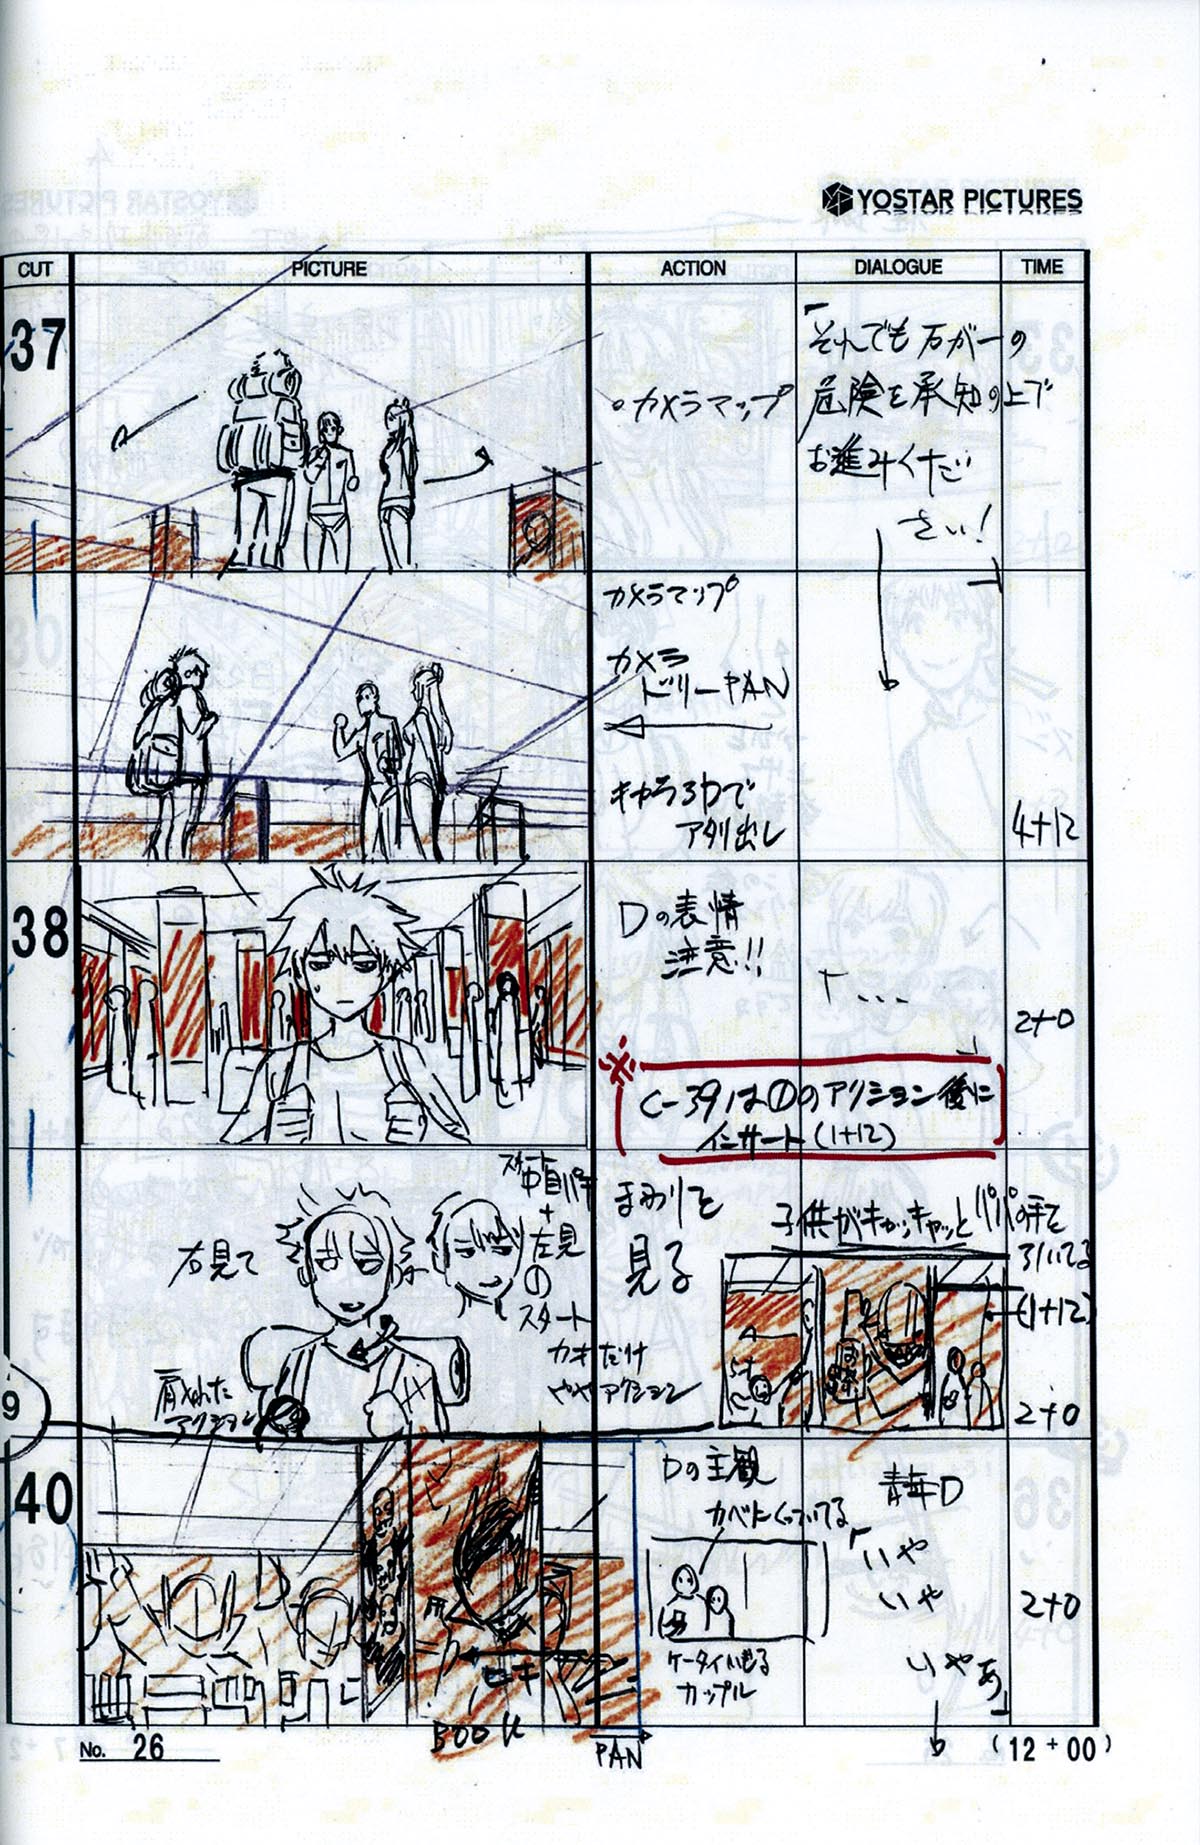 YOSTAR PICTURES
CUT
PICTURE
ACTION
DIALOGUE
TIME
37
カメラマップ
「それでも万が一の
危険を承知の上で
お進みくだ
さい!
」
カメラマップ
カメラ
ドリーPAN
キャラ3Dで
アタリ出し
4+12
38
Dの表情
注意!!
「...
」
2+0
※
C-39は①のアクション後に
インサート(1+12)
右見て
左見
の
スタート
カオだけ
ややアクション
肩入れた
アクション
まわりを
見る
子供がキャッキャッとパパの手を
引いてる
(1+12)
2+0
9
40
Dの主観
カベにくっついてる
ケータイいじる
カップル
青年D
「いや
いや
いやあ」
2+0
BOOK
PAN
No. 26
(12+00)